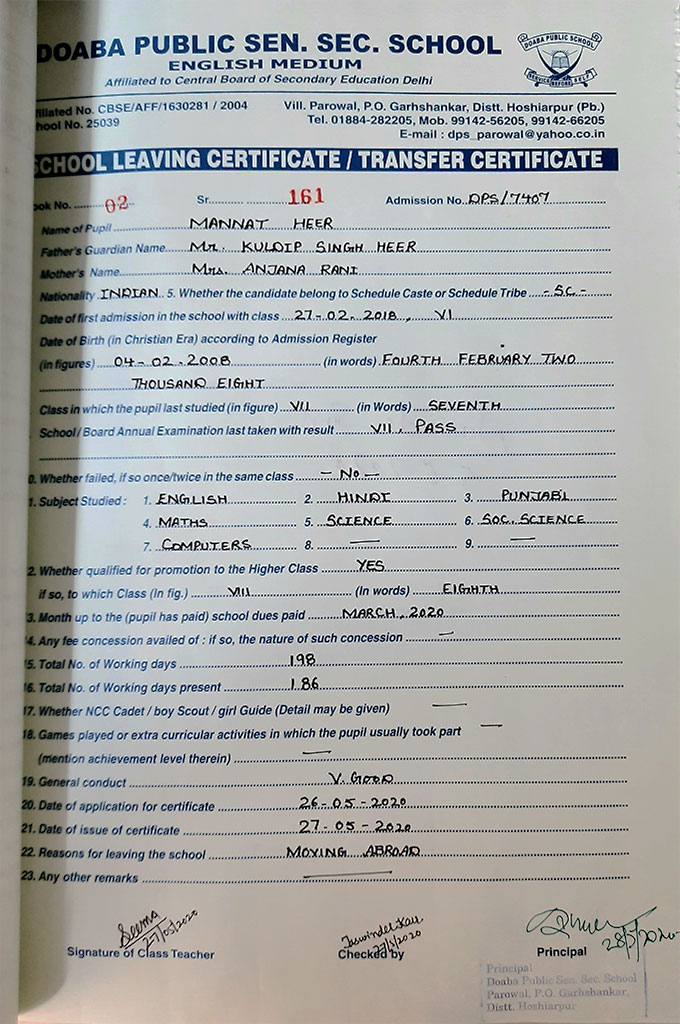 DOABA PUBLIC SEN. SEC. SCHOOL
ENGLISH MEDIUM
Affiliated to Central Board of Secondary Education Delhi
DOABA PUBLIC SCHOOL
SERVICE BEFORE SELF
iliated No. CBSE/AFF/1630281 / 2004 Vill. Parowal, P.O. Garhshankar, Distt. Hoshiarpur (Pb.)
hool No. 25039 Tel. 01884-282205, Mob. 99142-56205, 99142-66205
E-mail : dps_parowal@yahoo.co.in
SCHOOL LEAVING CERTIFICATE / TRANSFER CERTIFICATE
ook No. 02 Sr. 161 Admission No. DPS/7407
Name of Pupil MANNAT HEER
Father's Guardian Name Mr. KULDIP SINGH HEER
Mother's Name Mrs. ANJANA RANI
Nationality INDIAN 5. Whether the candidate belong to Schedule Caste or Schedule Tribe - SC -
Date of first admission in the school with class 27-02-2018, VI
Date of Birth (in Christian Era) according to Admission Register
(in figures) 04-02-2008 (in words) FOURTH FEBRUARY TWO
THOUSAND EIGHT
Class in which the pupil last studied (in figure) VII (in Words) SEVENTH
School / Board Annual Examination last taken with result VII, PASS
0. Whether failed, if so once/twice in the same class - No -
1. Subject Studied : 1. ENGLISH 2. HINDI 3. PUNJABI
4. MATHS 5. SCIENCE 6. SOC. SCIENCE
7. COMPUTERS 8. — 9. —
2. Whether qualified for promotion to the Higher Class YES
if so, to which Class (In fig.) VIII (In words) EIGHTH
3. Month up to the (pupil has paid) school dues paid MARCH, 2020
4. Any fee concession availed of : if so, the nature of such concession —
15. Total No. of Working days 198
16. Total No. of Working days present 186
17. Whether NCC Cadet / boy Scout / girl Guide (Detail may be given) —
18. Games played or extra curricular activities in which the pupil usually took part —
(mention achievement level therein) —
19. General conduct V. GOOD
20. Date of application for certificate 26-05-2020
21. Date of issue of certificate 27-05-2020
22. Reasons for leaving the school MOVING ABROAD
23. Any other remarks —
Seema 27/05/2020
Signature of Class Teacher
Jaswinder Kaur 27/5/2020
Checked by
28/5/2020
Principal
Principal
Doaba Public Sen. Sec. School
Parowal, P.O. Garhshankar,
Distt. Hoshiarpur